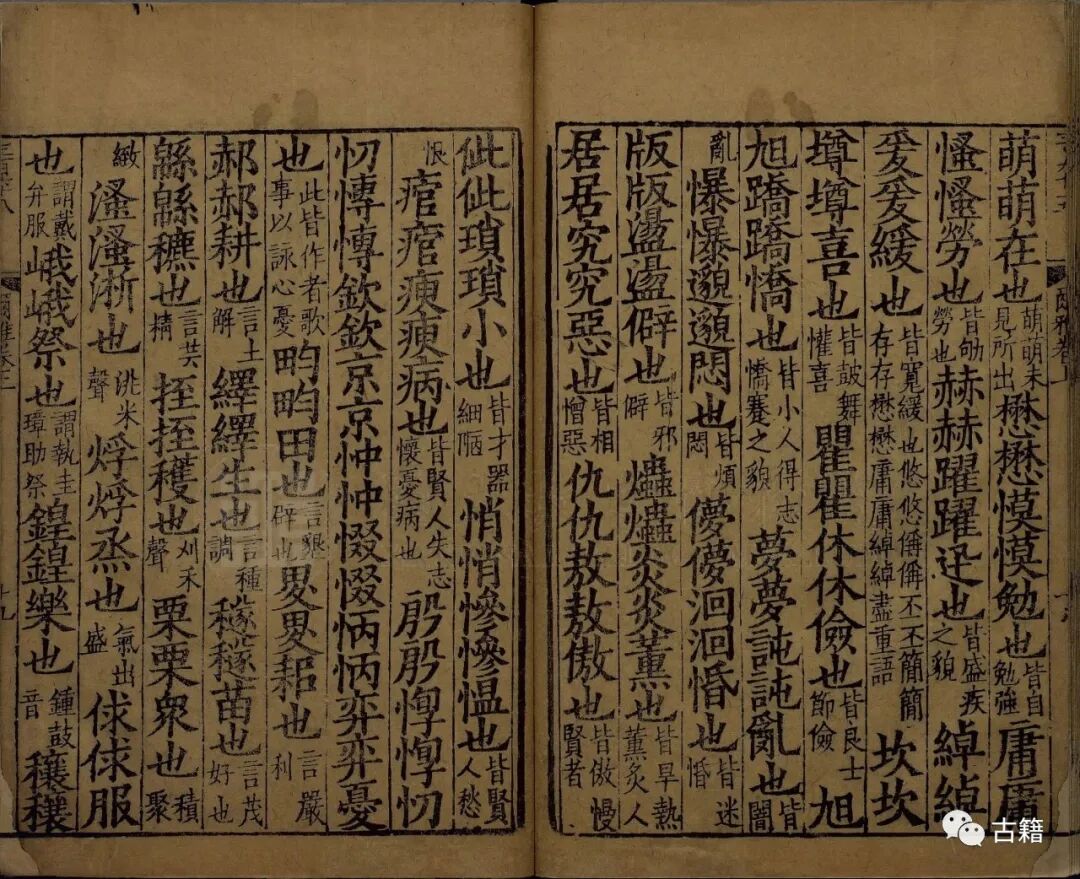 萌萌在也萌萌未見所出懋懋慔慔勉也皆自勉強庸庸
慅慅勞也皆劬勞也赫赫躍躍迅也皆盛疾之貌綽綽
爰爰緩也皆寬緩也悠悠偁偁丕丕簡簡存存懋懋庸庸綽綽盡重語坎坎
墫墫喜也皆鼓舞懽喜瞿瞿休休儉也皆良士節儉旭
旭蹻蹻憍也皆小人得志憍蹇之貌夢夢訰訰亂也皆闇
亂爆爆邈邈悶也皆煩悶儚儚洄洄惛也皆迷惛
版版盪盪僻也皆邪僻爞爞炎炎薰也皆旱熱薰炙人
居居究究惡也皆相憎惡仇仇敖敖傲也皆傲慢賢者
佌佌瑣瑣小也皆才器細陋悄悄慘慘慍也皆賢人愁
恨痯痯瘐瘐病也皆賢人失志懷憂病也殷殷惸惸忉
忉慱慱欽欽京京忡忡惙惙怲怲弈弈憂
也此皆作者歌事以詠心憂畇畇田也言墾辟也畟畟耜也言嚴利
郝郝耕也言土解繹繹生也言種調穟穟苗也言茂好也
緜緜穮也言芸精挃挃穫也刈禾聲栗栗衆也積聚
緻溞溞淅也洮米聲烰烰烝也氣出盛俅俅服
也謂戴弁服峨峨祭也謂執圭璋助祭鍠鍠樂也鍾鼓音穰穰
十九
古籍